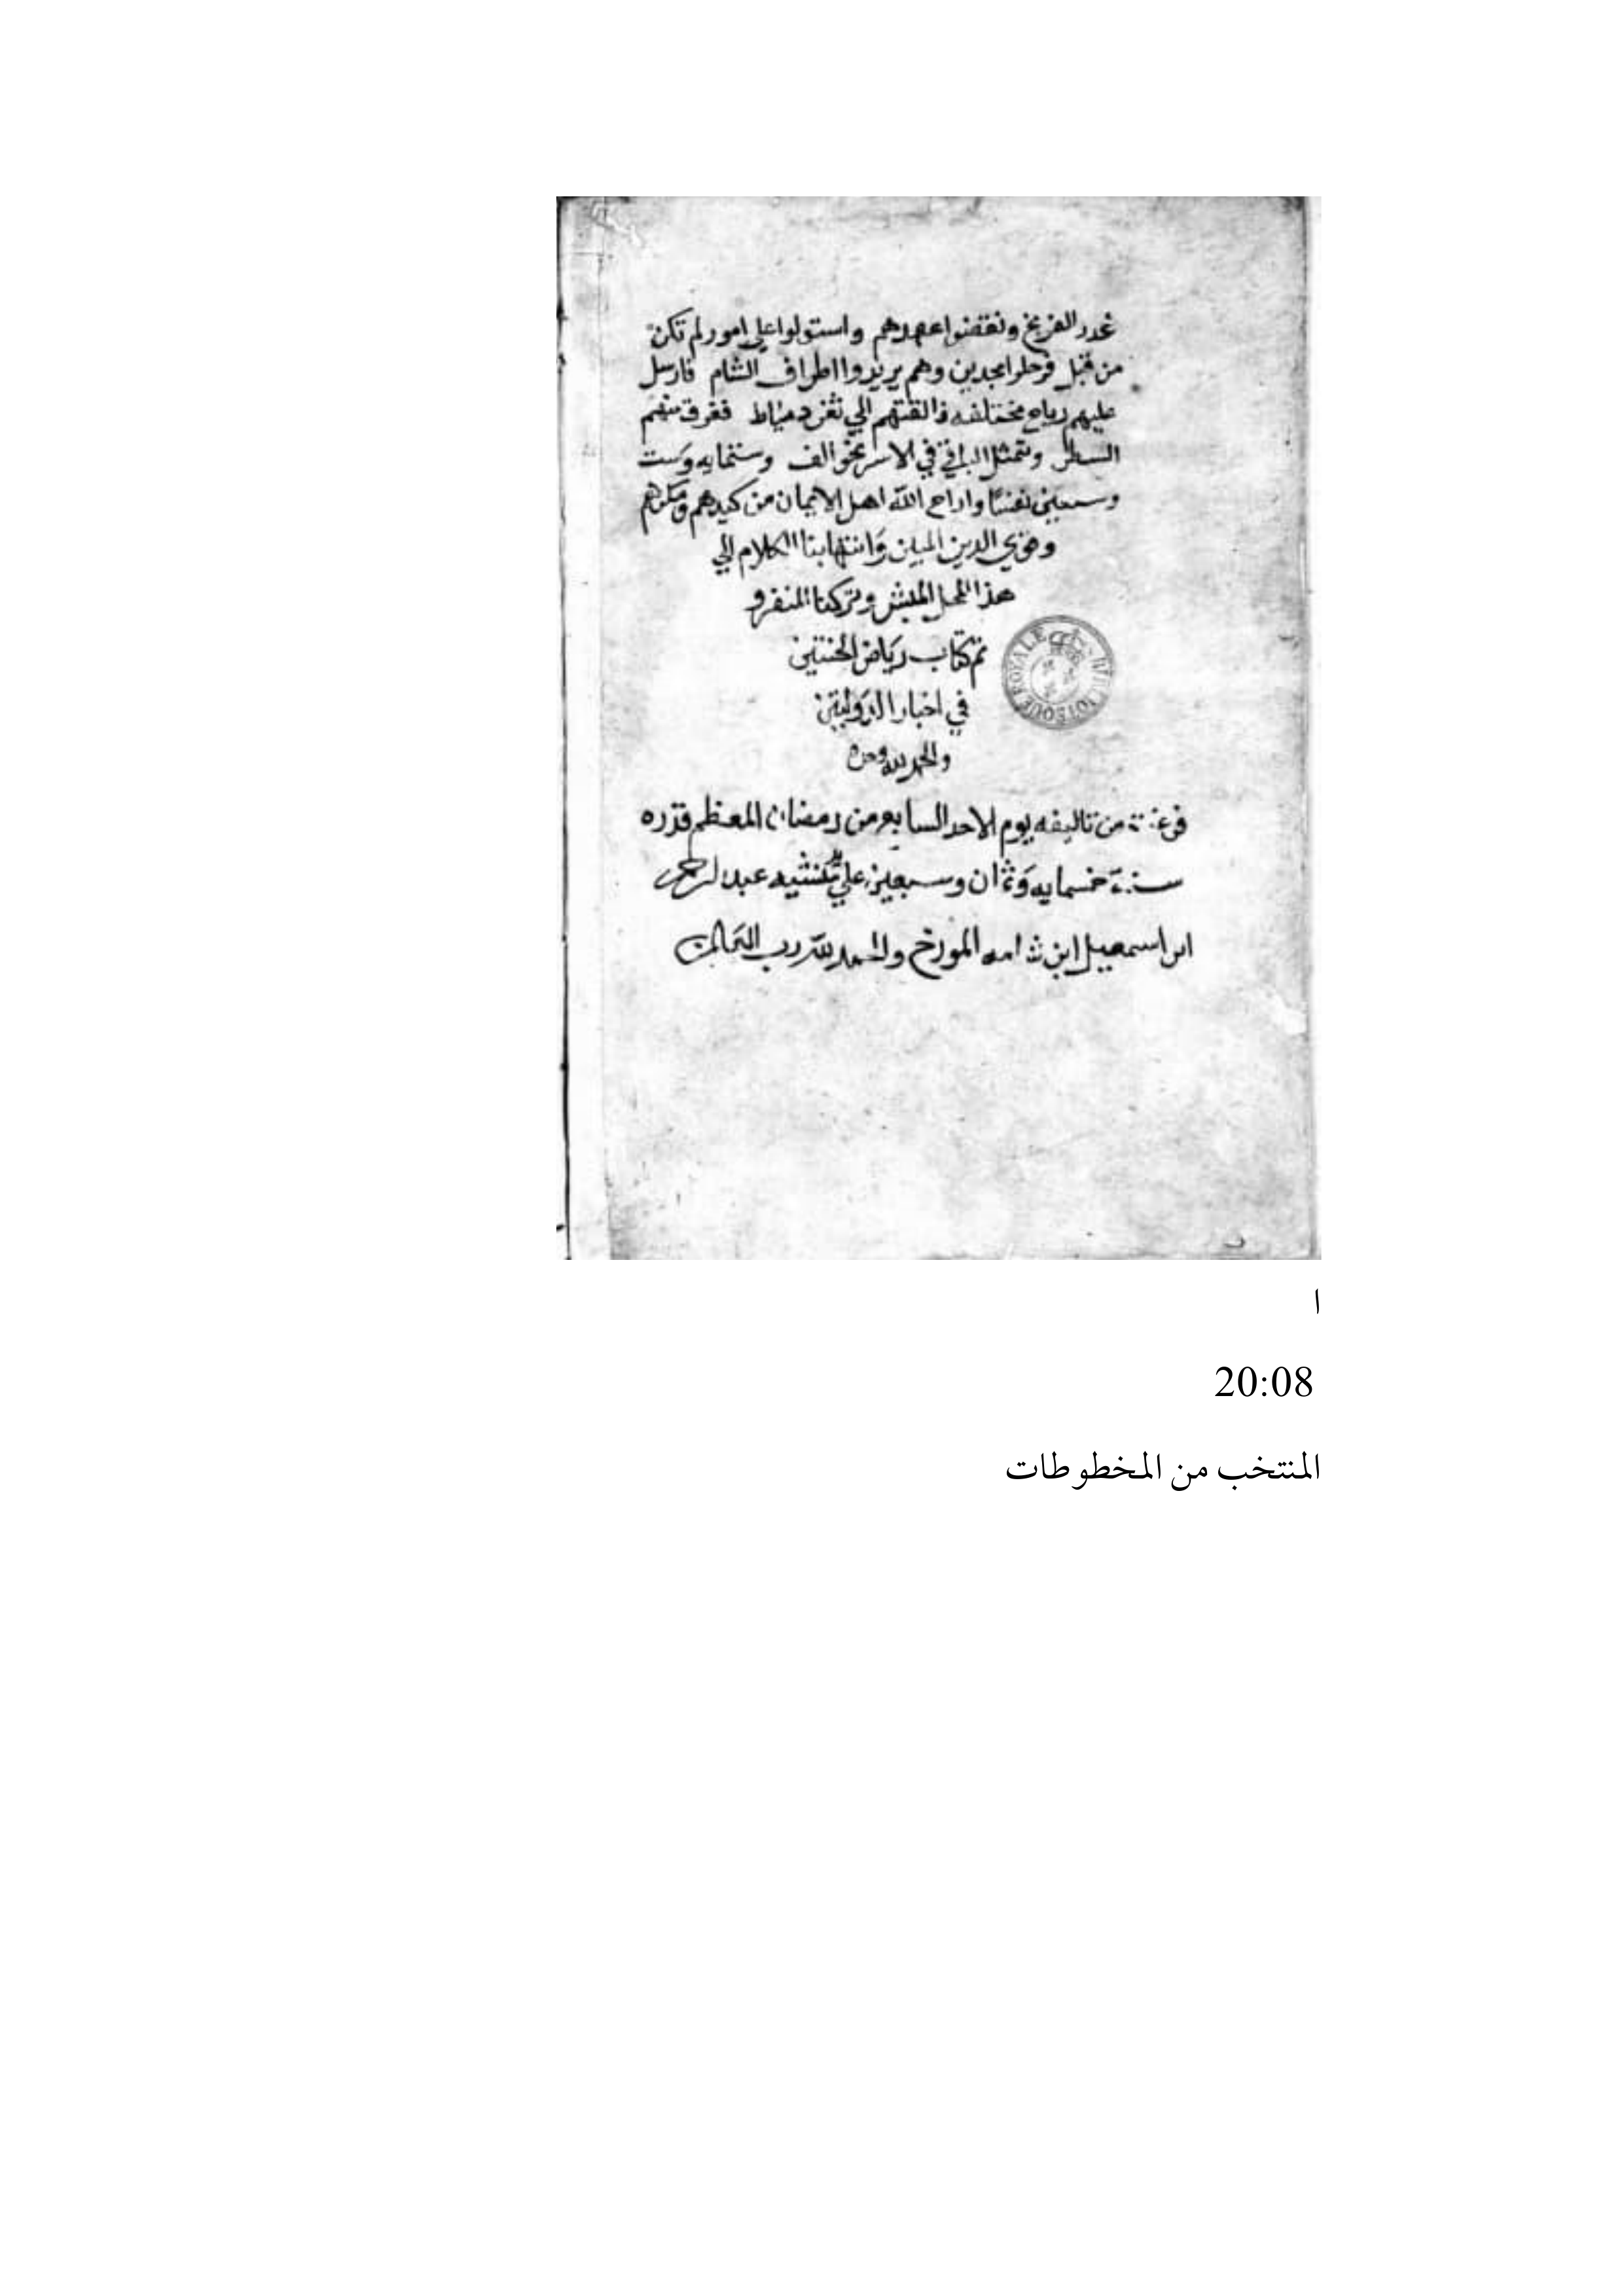 غدر الفرنج ونقضوا عهدهم واستولوا على امور لم تكن
من قبل فرحلوا مجدين وهم يريدوا اطراف الشام فارسل
عليهم رياح مختلفه فالقتهم الي ثغر دمياط فغرق منهم
السطر وتمثل الباقي في الاسر نحو الف وستمايه وست
وسبعين نفسًا واراح الله اهل الايمان من كيدهم ومكرهم
وقوي الدين المبين وانتها بنا الكلام الي
هذا المحل وتركنا
تم كتاب رياض الجنتين
في اخبار الدولتين
والحمد لله وحده
فرغت من تاليفه يوم الاحد السابع من رمضان المعظم قدره
سنة خمسمايه وثمان وسبعين علي عبد الرحمن
ابن اسمعيل ابن شامه المورخ والحمد لله رب العالمين
BIBLIOTHEQUE ROYALE
ا
20:08
المنتخب من المخطوطات